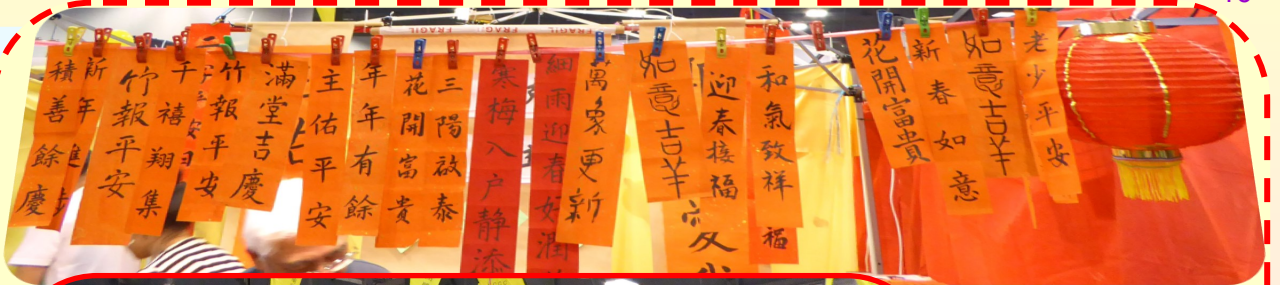 積善餘慶
新年進步
竹報平安
千禧翔集
竹報平安
滿堂吉慶
主佑平安
年年有餘
花開富貴
三陽啟泰
寒梅入户静添
細雨迎春好潤
萬象更新
如意吉羊
迎春接福
和氣致祥
福
花開富貴
新春如意
如意吉羊
老少平安
FRAGIL